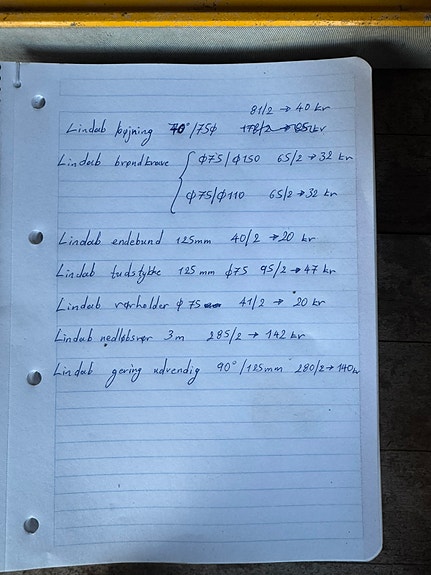 81/2 → 40 kr
Lindab bøjning 70°/75φ
Lindab brøndkrave φ75/φ150 65/2 → 32 kr
φ75/φ110 65/2 → 32 kr
Lindab endebund 125mm 40/2 → 20 kr
Lindab tudstykke 125 mm φ75 95/2 → 47 kr
Lindab rørholder φ 75 41/2 → 20 kr
Lindab nedløbsrør 3m 285/2 → 142 kr
Lindab gering udvendig 90°/125mm 280/2 → 140kr